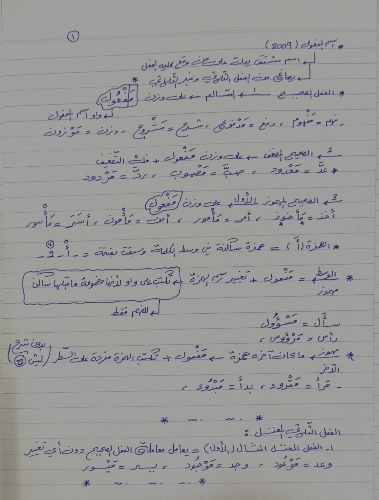 ①
* اسم المفعول (2009)
اسم مشتق يدل على من وقع عليه الفعل
يصاغ من الفعل الثلاثي وغير الثلاثي *
* الفعل الصحيح ← 1- السالم ← على وزن مَفْعُول
واو اسم المفعول
فهم = مَفْهُوم ، دفع = مَدْفوع ، شرح = مَشْرُوح ، وزن = مَوْزون
2- الصحيح المضعف ← على وزن مَفْعُول + فك التضعيف
* عدَّ = مَعْدُود ، صبَّ = مَصْبوب ، ردَّ = مَرْدود
3- الصحيح المهموز الأول ← على وزن مَفْعُول
أخذ = مَأْخوذ ، أمر = مَأْمور ، أمن = مَأْمون ، أسَرَ = مَأْسور
* الهمزة (أْ) = همزة ساكنة في وسط الكلمة وسبقت بفتحة = ـَ أْ ـ
* مهموز الوسط ← مَفْعُول + تغيير رسم الهمزة ← تكتب على واو لأنها مضمومة ما قبلها ساكن
للفهم فقط
سأل = مَسْؤُول
رأس = مَرْؤوس ،
* مهموز الآخر ← ما كان آخره همزة ← مَفْعُول + تكتب الهمزة مفردة على السطر (بدون شرح ليش)
- قرأ = مَقْروء ، بدأ = مَبْدُوء ،
* ... . ... *
الفعل الثلاثي المعتل :
1- الفعل المعتل المثال (الأول) = يعامل معاملة الفعل الصحيح دون أي تغيير
وعد = مَوْعُود ، وجد = مَوْجُود ، يسر = مَيْسور
* ... . ... *